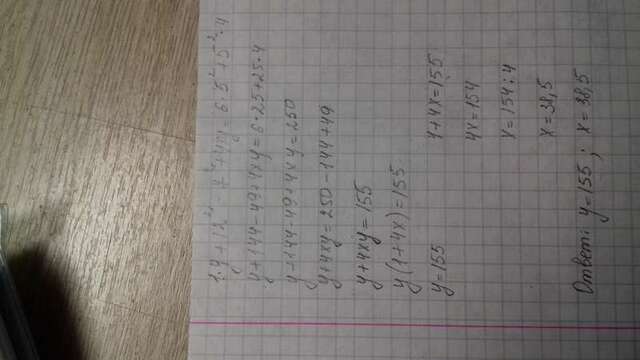 1·y+12² - 7²+4xy = 6·5²+5²·4
y+144-49+4xy=6·25+25·4
y+144-49+4xy=250
y+4xy=250-144+49
y+4xy=155
y(1+4x)=155
y=155
1+4x=155
4x=154
x=154:4
x=38,5
Ответ: y=155; x=38,5